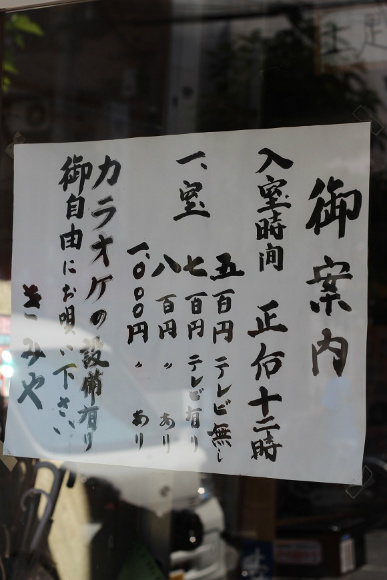 御案内
入室時間 正午十二時
一、室
五百円 テレビ無し
七百円 テレビ有り
八百円 〃 あり
一、〇〇〇円 〃 あり
カラオケの設備有り
御自由にお唄い下さい
きみや
土足